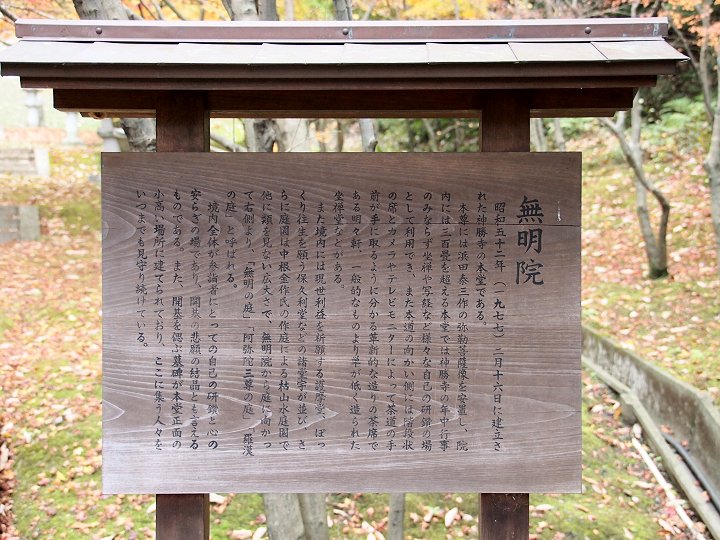 無明院
昭和五十二年（一九七七）二月十六日に建立さ
れた神勝寺の本堂である。
本尊には浜田泰三作の弥勒菩薩像を安置し、院
内には三百畳を超える本堂では神勝寺の年中行事
のみならず坐禅や写経など様々な自己の研鑽の場
として利用でき、また本道の向かい側には階段状
の席とカメラやテレビモニターによって茶道の手
前が手に取るように分かる革新的な造りの茶席で
ある明々軒、一般的なものより単が低く造られた
坐禅堂などがある。
また境内には現世利益を祈願する護摩堂、ぽっ
くり往生を願う保久利堂などの諸堂宇が並び、さ
らに庭園は中根金作氏の作庭による枯山水庭園で
他に類を見ない広大さで、無明院から庭に向かっ
て右側より、「無明の庭」「阿弥陀三尊の庭」「羅漢
の庭」と呼ばれる。
境内全体が参詣者にとっての自己の研鑽と心の
安らぎの場であり、開基の悲願の結晶とも言える
ものである。また、開基を偲ぶ墓碑が本堂正面の
小高い場所に建てられており、ここに集う人々を
いつまでも見守り続けている。